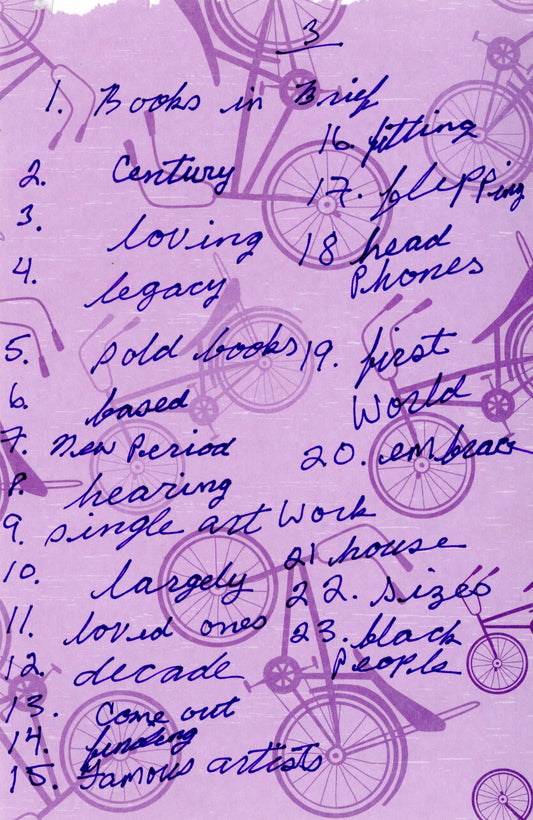 3
1. Books in Brief
2. Century
3. loving
4. legacy
5. sold books
6. based
7. new Period
8. hearing
9. single art Work
10. largely
11. loved ones
12. decade
13. Come out
14.
15. Famous artists
16. fitting
17.
18 head
Phones
19. first
World
20. embrace
21 house
22. sizes
23. black
People